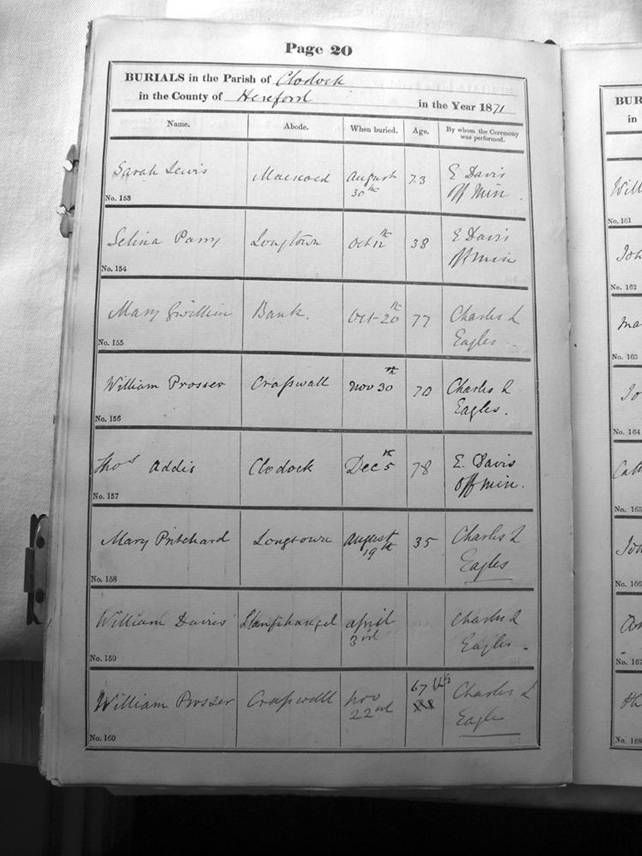 Page 20
BURIALS in the Parish of Clodock
in the County of Hereford in the Year 1871
Name. Abode. When buried. Age. By whom the Ceremony was performed.
Sarah Lewis Maescoed August 73 E Davis
30th Off Min.
No. 153
Selina Parry Longtown Oct 12th 38 E Davis
Off Min
No. 154
Mary Gwillim Bank. Oct 20th 77 Charles L
Eagles
No. 155
William Prosser Craswall Nov 30th 70 Charles L
Eagles.
No. 156
Thos Addis Clodock Dec 5th 78 E. Davis
Off Min.
No. 157
Mary Pritchard Longtown August 35 Charles L
19th Eagles
No. 158
William Davies Llanfihangel april Charles L
3rd Eagles.
No. 159
William Prosser Craswall nov 67 Charles L
22nd Eagles
No. 160
BUR
in
Will
No. 161
Joh
No. 162
Ma
No. 163
Jo
No. 164
Cath
No. 165
Joh
No. 166
No. 167
Th
No. 168